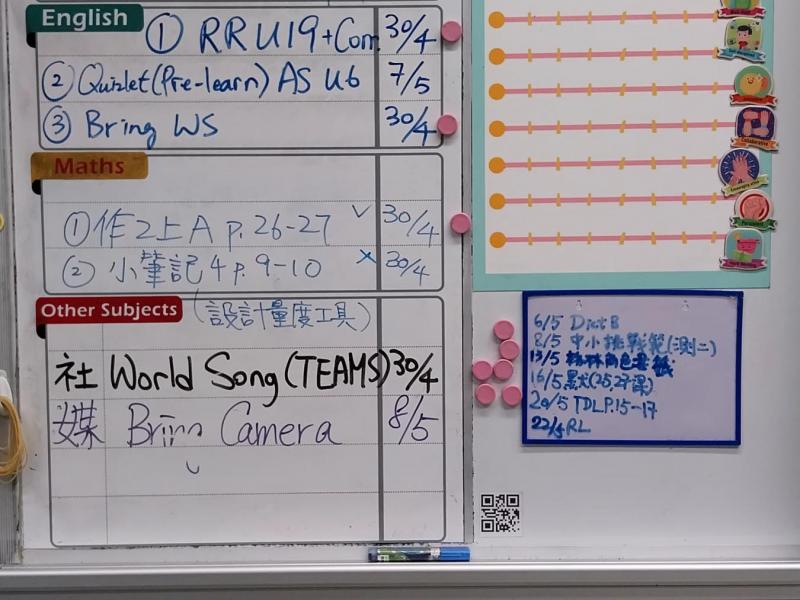 English
① RRU19+Com 30/4
② Quizlet (Pre-learn) AS U6 7/5
③ Bring WS 30/4
Maths
① 作2上A p.26-27 ✓ 30/4
② 小筆記4 p.9-10 × 30/4
Other Subjects (設計量度工具)
社 World Song (TEAMS) 30/4
媒 Bring Camera 8/5
6/5 Dict 8
8/5 中小挑戰
13/5 角色
16/5 默
20/5 TDLP.15-17
22/5 RL
Collaborative